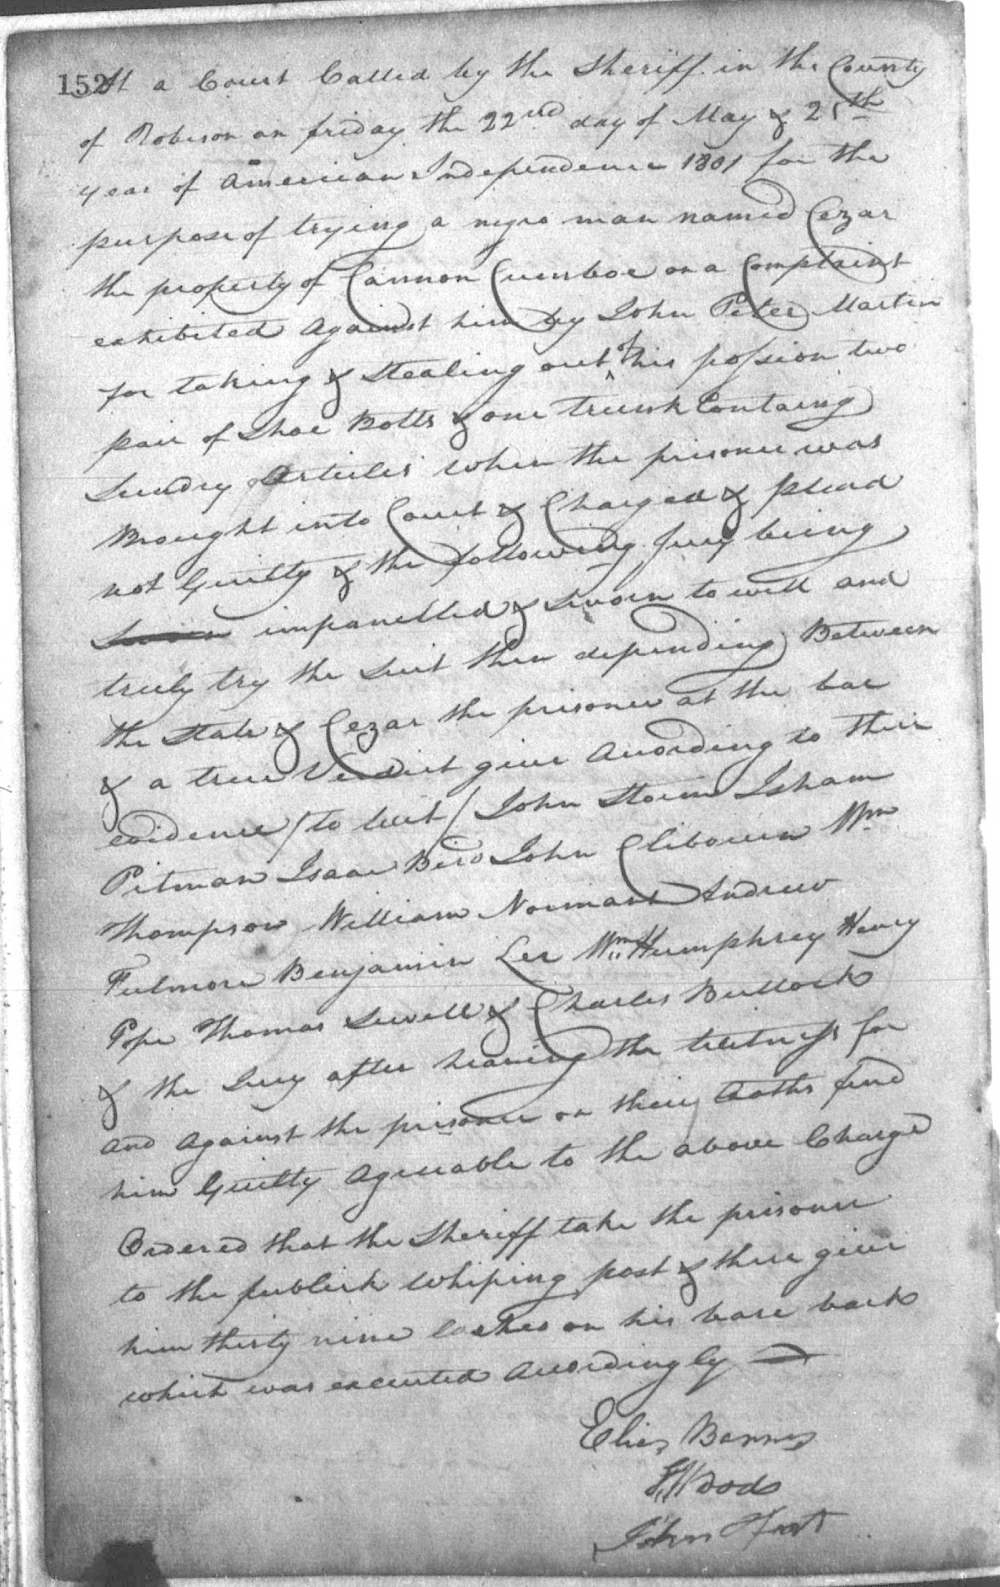 152 At a Court Called by the Sheriff in the County
of Robeson on friday the 22nd day of May & 25th
year of American Independence 1801 for the
purpose of trying a negro man named Cezar
the property of Cannon Cumboe on a Complaint
exhibited Against him by John Peter Martin
for taking & stealing out of his possion two
pair of Shoe Botts & one trunk Containg
Sundry Articles when the prisoner was
Brought into Court & Charged & plead
not Guilty & the following Jury being
Sworn impanelled & Sworn to well and
truly try the Suit then depending Between
the State & Cezar the prisoner at the bar
& a true Verdict give Acording to their
evidence / to wit / John Storm Isham
Pitman Isaac Bird John Clibourn Wm
Thompson William Normant Andrew
Fulmore Benjamin Lee Wm Humphrey Henry
Pope Thomas Sewell & Charles Bullock
& the Jury after hearing the wittness for
and Against the prisoner on their Oaths find
him Guilty Agreeable to the above Charge
Ordered that the Sheriff take the prisoner
to the publick whiping post & there give
him thirty nine lashes on his bare back
which was executed Acordingly
Elias Barnes
Woods
John